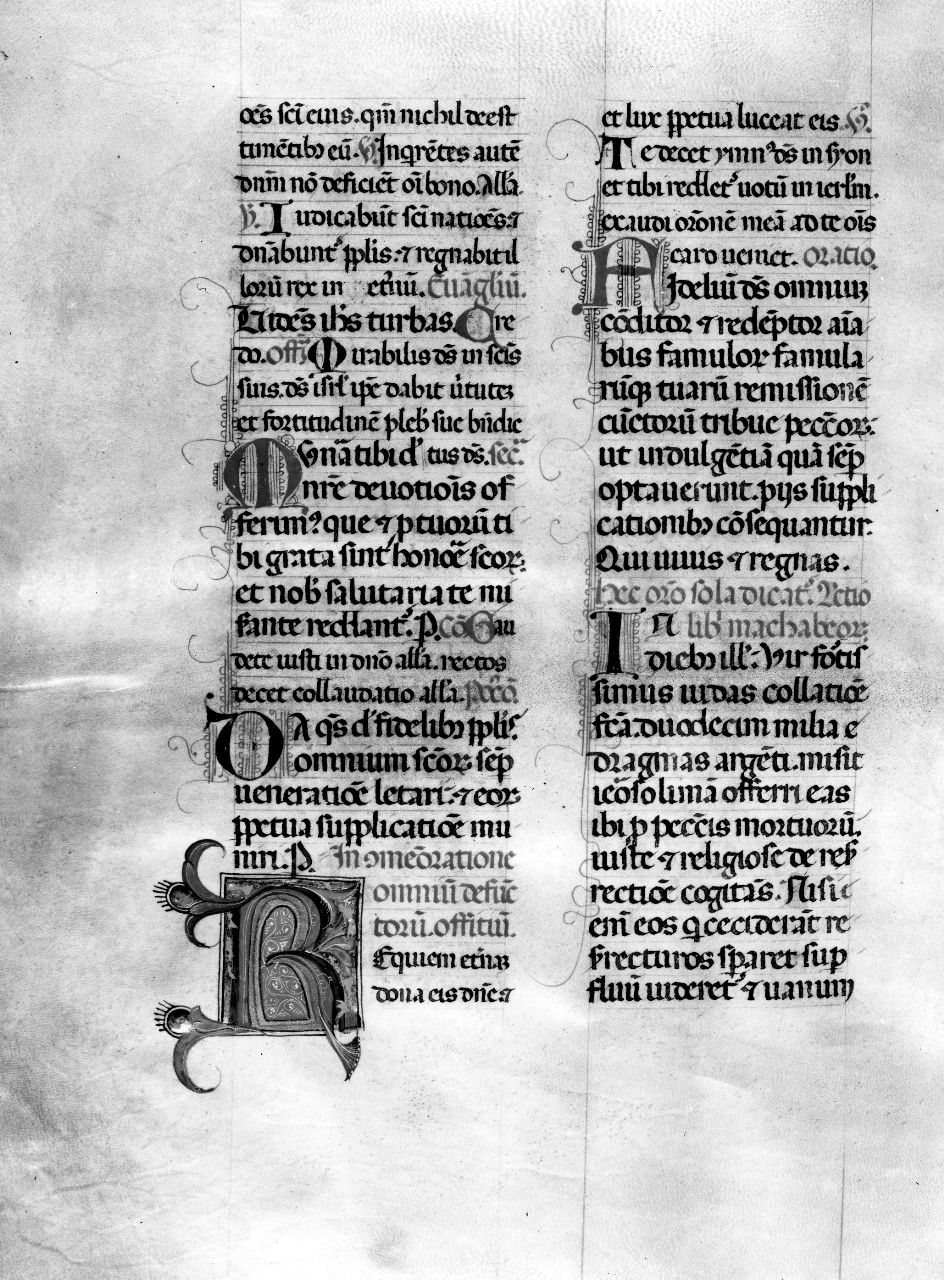 oēs sc̄i eius. qm̄ nichil deest
timētibꝫ eū. ℣. Inqrētes autē
dnm̄ nō deficiēt oī bono. All'a.
℣. Iudicabūt sc̄i natioēs ⁊
dnābunt' pplis. ⁊ regnabit il
lorū rex in et'nū. Euāgliū.
Uidēs ih̄s turbas. Cre
do. Off. Mirabilis ds̄ in sc̄is
suis. ds̄ isrl' ip̄e dabit ūtutē
et fortitudinē pleb' sue bn̄dic
Munā tibi d's tus ds̄. sec̄.
nr̄e devotiōis of
ferim'? que ⁊ p tuorū ti
bi grata sint honoē scoꝝ.
et nob' salutaria te mi
sante reddant'. P. Cō. Gau
dete iusti in dn̄o all'a. rectos
decet collaudatio all'a. Pꝰcō.
Da qs̄ d's fidelibꝫ pplis
omnium scōꝝ sēp
veneratiōe letari. ⁊ eoꝝ
ppetua supplicatiōe mu
niri. P. In ꝯmēoratione
omniū defūc
torū. offitiū.
Requiem et'nā
dona eis dn̄e. ⁊
et lux ppetua luceat eis. ℣.
Te decet ymnꝰ ds̄ in syon
et tibi reddet' votū in ierlm̄.
exaudi orōnē meā ad te oīs
caro veniet. Oratio.
Fideliū ds̄ omniuꝫ
cōditor ⁊ redēptor aīa
bus famuloꝝ famula
rūqꝫ tuarū remissionē
cūctorū tribue peccōꝝ.
ut indulgētiā quā sēp
optaverunt. pijs suppli
cationibꝫ cōsequantur.
Qui vivis ⁊ regnas.
Hec orō sola dicat'. Lectio
In lib' machabeoꝝ.
diebꝫ ill'. Vir fōtis
simus iudas collatiōe
fc̄a. duodecim milia
dragmas argēti. misit
ierosolimā offerri eas
ibi p pecc̄is mortuorū.
iuste ⁊ religiose de res'
rectiōe cogitās. Nisi
eni' eos q ceciderāt re
s'recturos sparet sup
fluū videret' ⁊ vanum